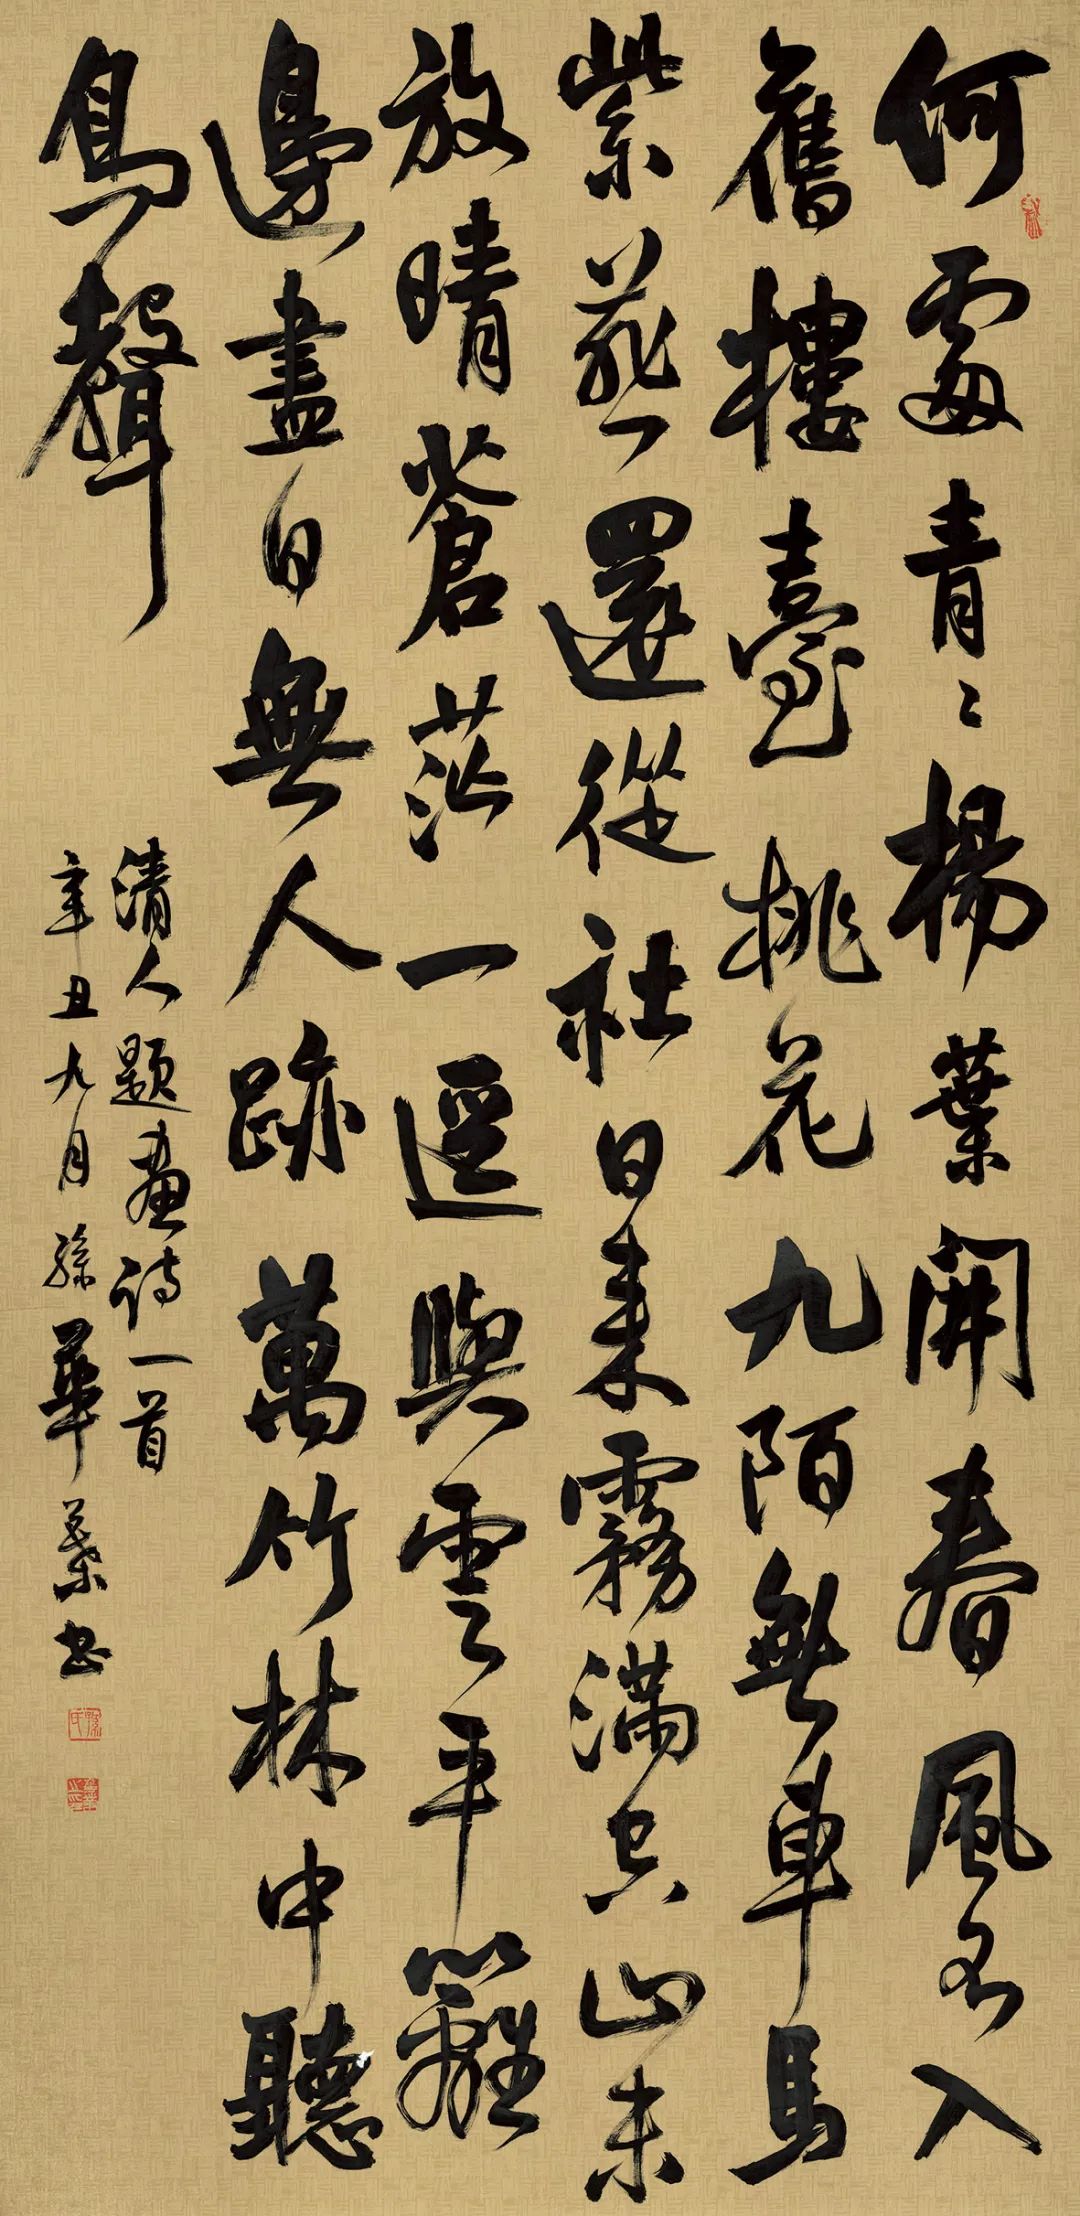 何處青〻楊葉開春風入
舊樓臺桃花九陌無車馬
紫燕還從社日來霧滿空山未
放晴蒼茫一逕與雲平籬
邊盡日無人跡萬竹林中聽
鳥聲
清人題畫詩一首
辛丑九月孫華書